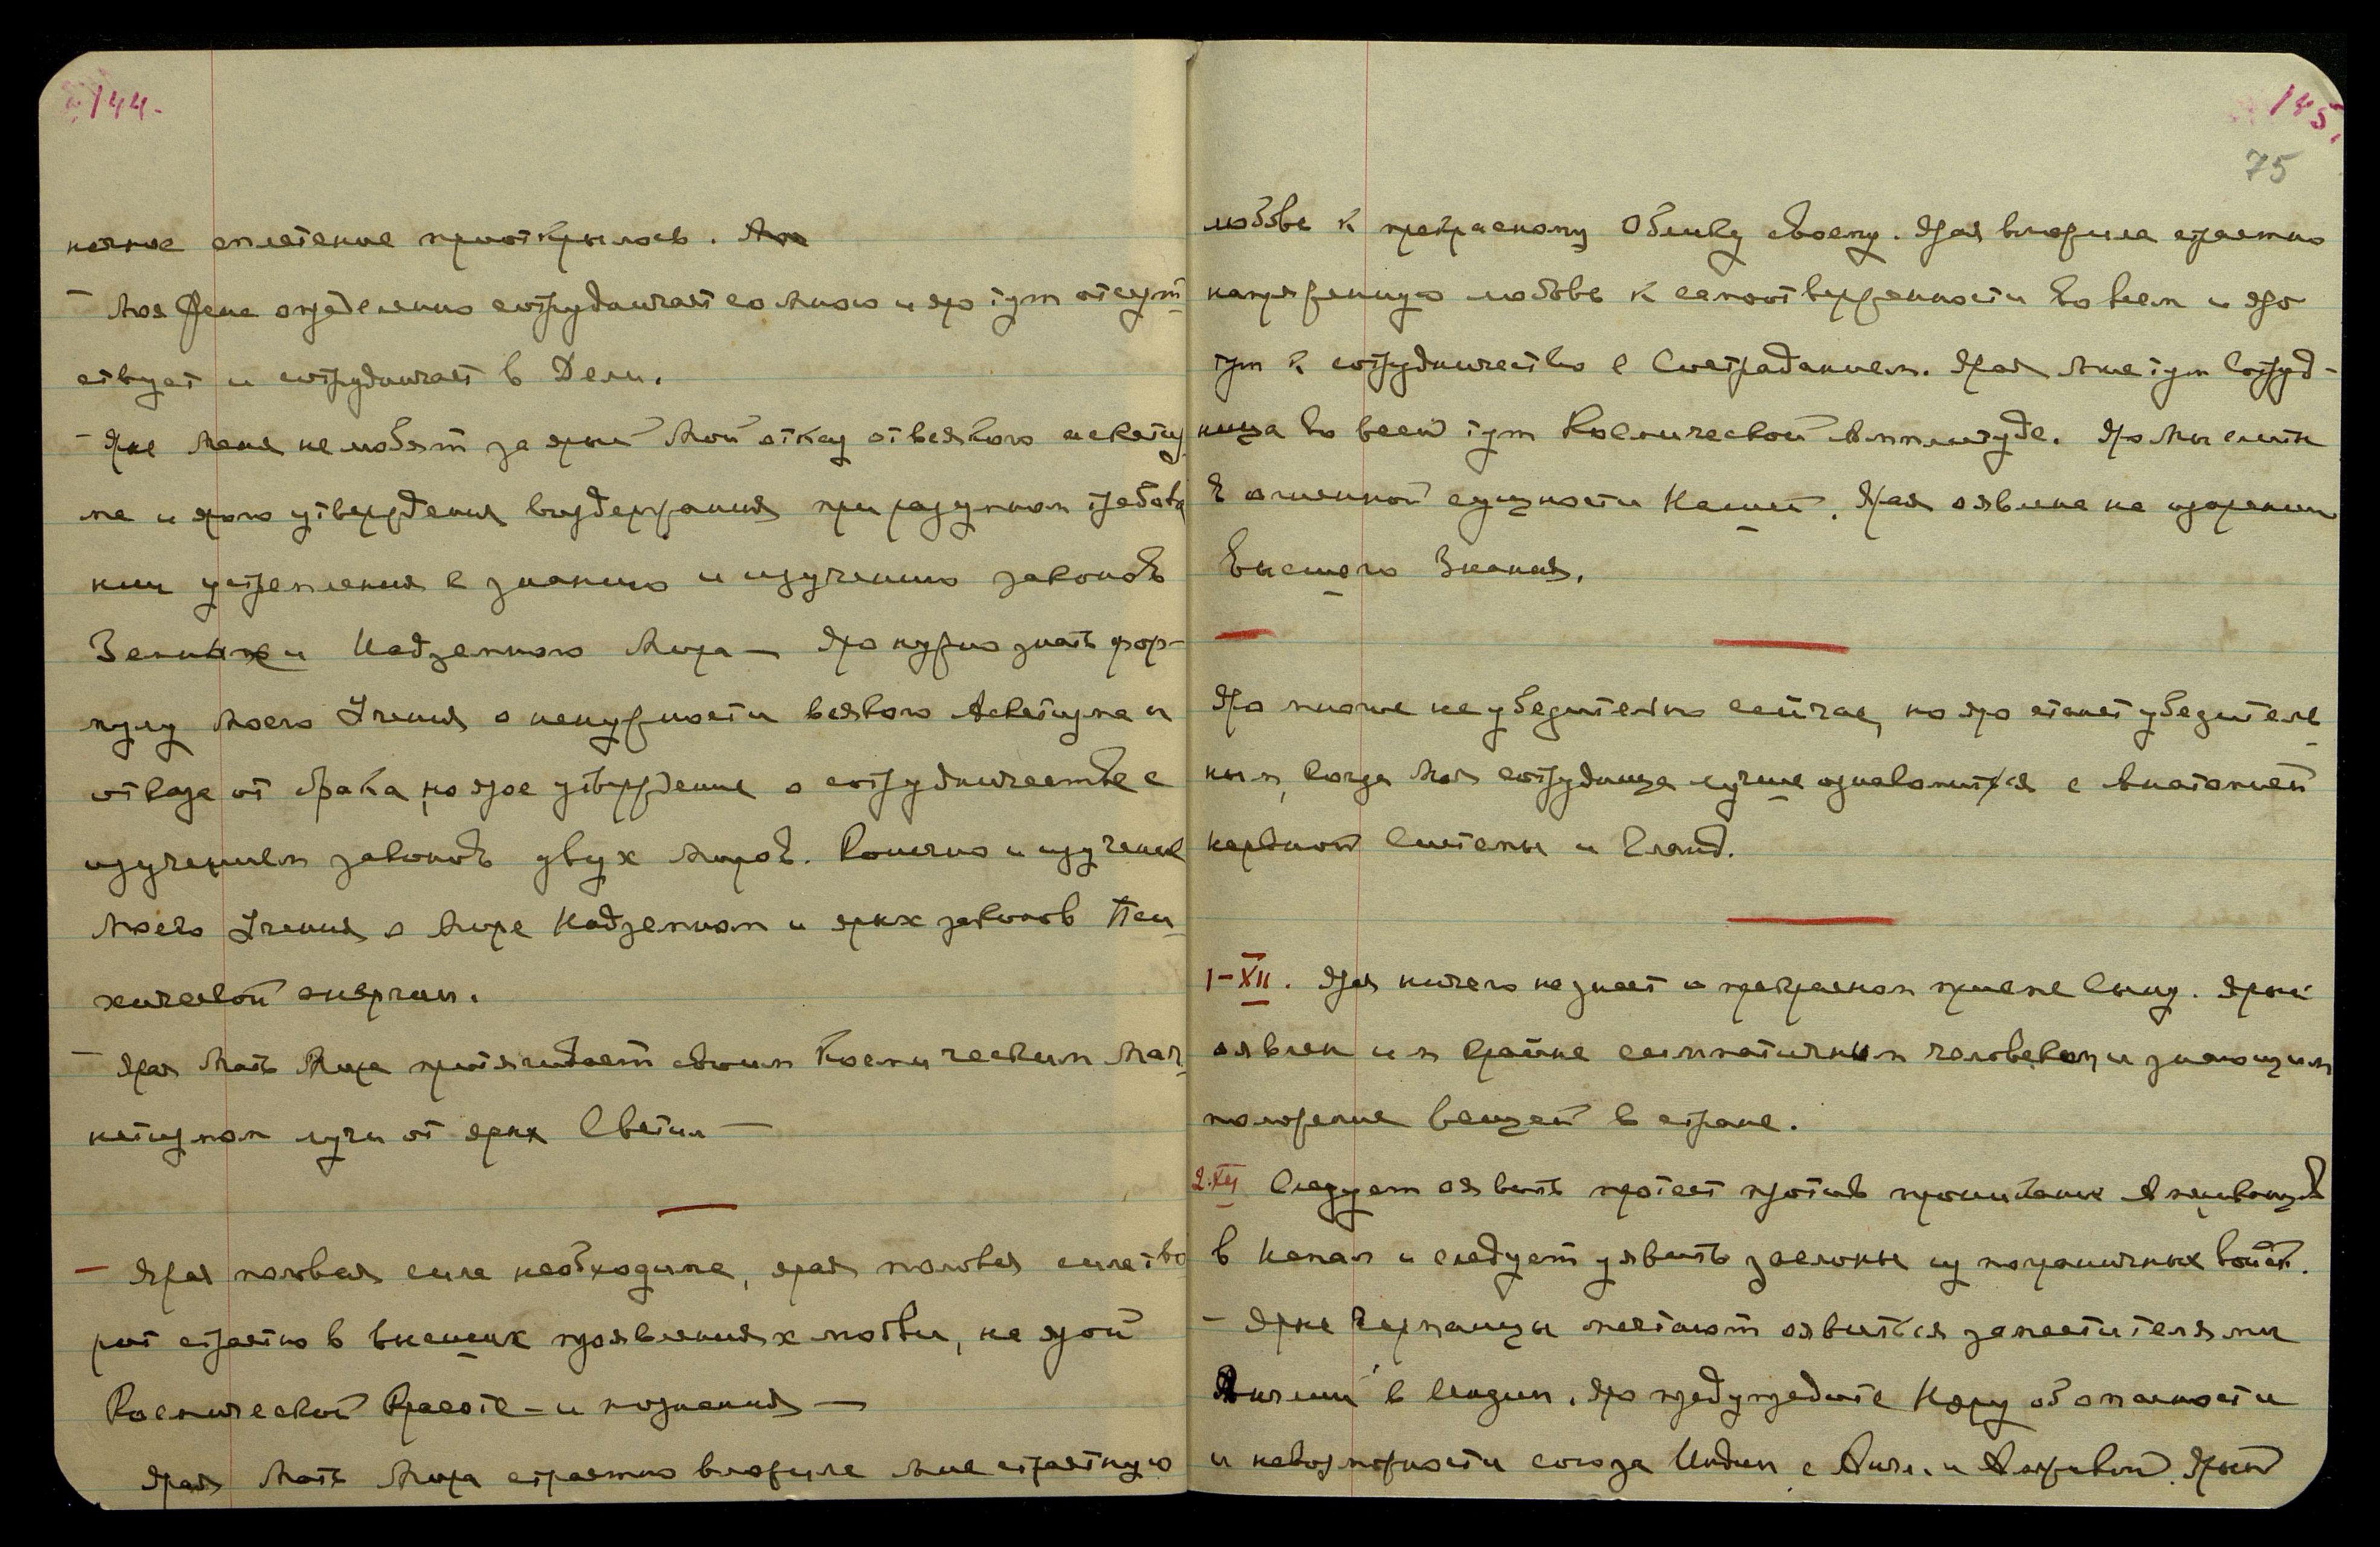 144.
ночное сплетение приоткрылось.
– Моя Жена определенно сотрудничает со Мною и яро тут отсут
ствует и сотрудничает в Дели.
– Ярые Меня не любят за ярый Мой отказ от всякого аскетиз
ма и ярого утверждения воздержания при разумном требова
нии устремления к знанию и изучению законов
Земных и Надземного Мира — Яро нужно знать фор-
мулу Моего Учения о ненужности всякого Аскетизма и
отказа от брака, но ярое утверждение о сотрудничестве с
изучением законов двух Миров. Конечно и изучение
Моего Учения о Мире Надземном и ярых законов Пси
хической энергии.
– Ярая Мать Мира притягивает своим Космическим Маг
нетизмом лучи от ярых Светил —
– Ярая половая сила необходима, ярая половая сила тво
рит страстно в высших проявлениях любви, на ярой
Космической Красоте – и познания —
Ярая Мать Мира страстно вложила Мне страстную
145.
75
любовь к прекрасному Облику своему. Ярая вложила страстно
напряженную любовь к самоотверженности во всем и яро
тут к сотрудничеству с Состраданием. Ярая Мне тут Сотруд-
ница во всей тут Космической Амплитуде. Яро Мы слиты
в огненной сущности Нашей. Ярая оявлена на
Высшего Знания.
Яро многое не убедительно сейчас, но яро станет убедитель
ным, когда Моя сотрудница лучше ознакомится с Анатомией
нервной Системы и Гланд.
1–XII. Ярая ничего не знает о прекрасном приеме Сыну. Ярый
оявлен им крайне симпатичным человеком и знающим
положение вещей в стране.
2.XII Следует оявить протест против
в Непал и следует уявить заслоны из пограничных войск.
– Ярые Германцы мечтают оявиться заместителями
Англии в Индии. Яро предупредите Неру об опасности
и невозможности союза Индии с Англ. и Америкой. Ярый